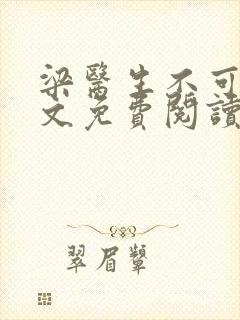 梁醫生不可
文免費閱讀
翠眉顰